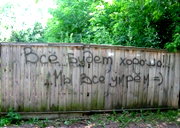 Всё будет хорошо...
Мы все умрём =)